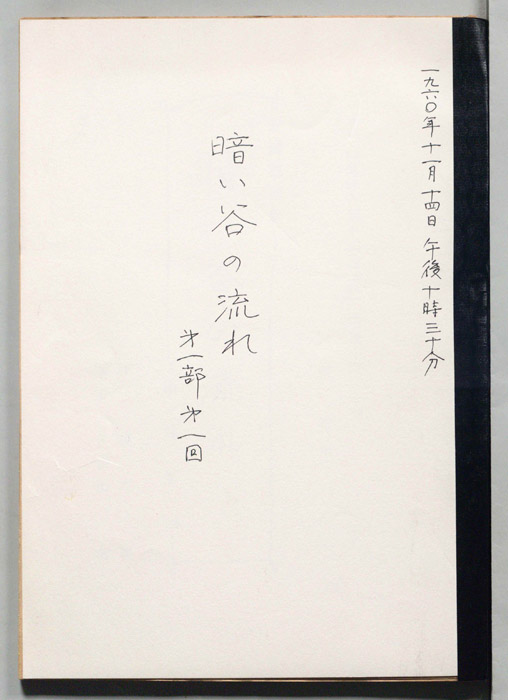 一九六〇年十一月十四日 午後十時三十分
暗い谷の流れ
㐧一部 㐧一回